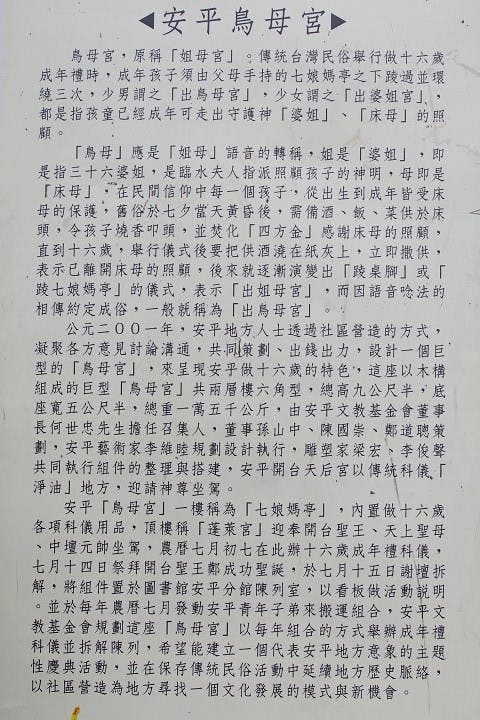 ◀安平鳥母宮▶
鳥母宮，原稱「姐母宮」。傳統台灣民俗舉行做十六歲
成年禮時，成年孩子須由父母手持的七娘媽亭之下踜過並環
繞三次，少男謂之「出鳥母宮」，少女謂之「出婆姐宮」，
都是指孩童已經成年可走出守護神「婆姐」、「床母」的照
顧。
「鳥母」應是「姐母」語音的轉稱，姐是「婆姐」，即
是指三十六婆姐，是臨水夫人指派照顧孩子的神明，母即是
『床母」，在民間信仰中每一個孩子，從出生到成年皆受床
母的保護，舊俗於七夕當天黃昏後，需備酒、飯、菜供於床
頭，令孩子燒香叩頭，並焚化「四方金」感謝床母的照顧，
直到十六歲，舉行儀式後要把供酒澆在紙灰上，立即撤供，
表示已離開床母的照顧，後來就逐漸演變出「踜桌腳」或「
踜七娘媽亭」的儀式，表示「出姐母宮」，而因語音唸法的
相傳約定成俗，一般就稱為「出鳥母宮」。
公元二００一年，安平地方人士透過社區營造的方式，
凝聚各方意見討論溝通，共同策劃、出錢出力，設計一個巨
型的「鳥母宮」，來呈現安平做十六歲的特色，這座以木構
組成的巨型「鳥母宮」共兩層樓六角型，總高九公尺半，底
座寬五公尺半，總重一萬五千公斤，由安平文教基金會董事
長何世忠先生擔任召集人，董事孫山中、陳國崇、鄭道聰策
劃，安平藝術家李維睦規劃設計執行，雕塑家梁宏、李俊聲
共同執行組件的整理與搭建，安平開台天后宮以傳統科儀「
淨油」地方，迎請神尊坐駕。
安平「鳥母宮」一樓稱為「七娘媽亭」，內置做十六歲
各項科儀用品，頂樓稱「蓬萊宮」迎奉開台聖王、天上聖母
、中壇元帥坐駕，農曆七月初七在此辦十六歲成年禮科儀，
七月十四日祭拜開台聖王鄭成功聖誕，於七月十五日謝壇拆
解，將組件置於圖書館安平分館陳列室，以看板做活動說明
。並於每年農曆七月發動安平青年子弟來搬運組合，安平文
教基金會規劃這座「鳥母宮」以每年組合的方式舉辦成年禮
科儀並拆解陳列，希望能建立一個代表安平地方意象的主題
性慶典活動，並在保存傳統民俗活動中延續地方歷史脈絡，
以社區營造為地方尋找一個文化發展的模式與新機會。